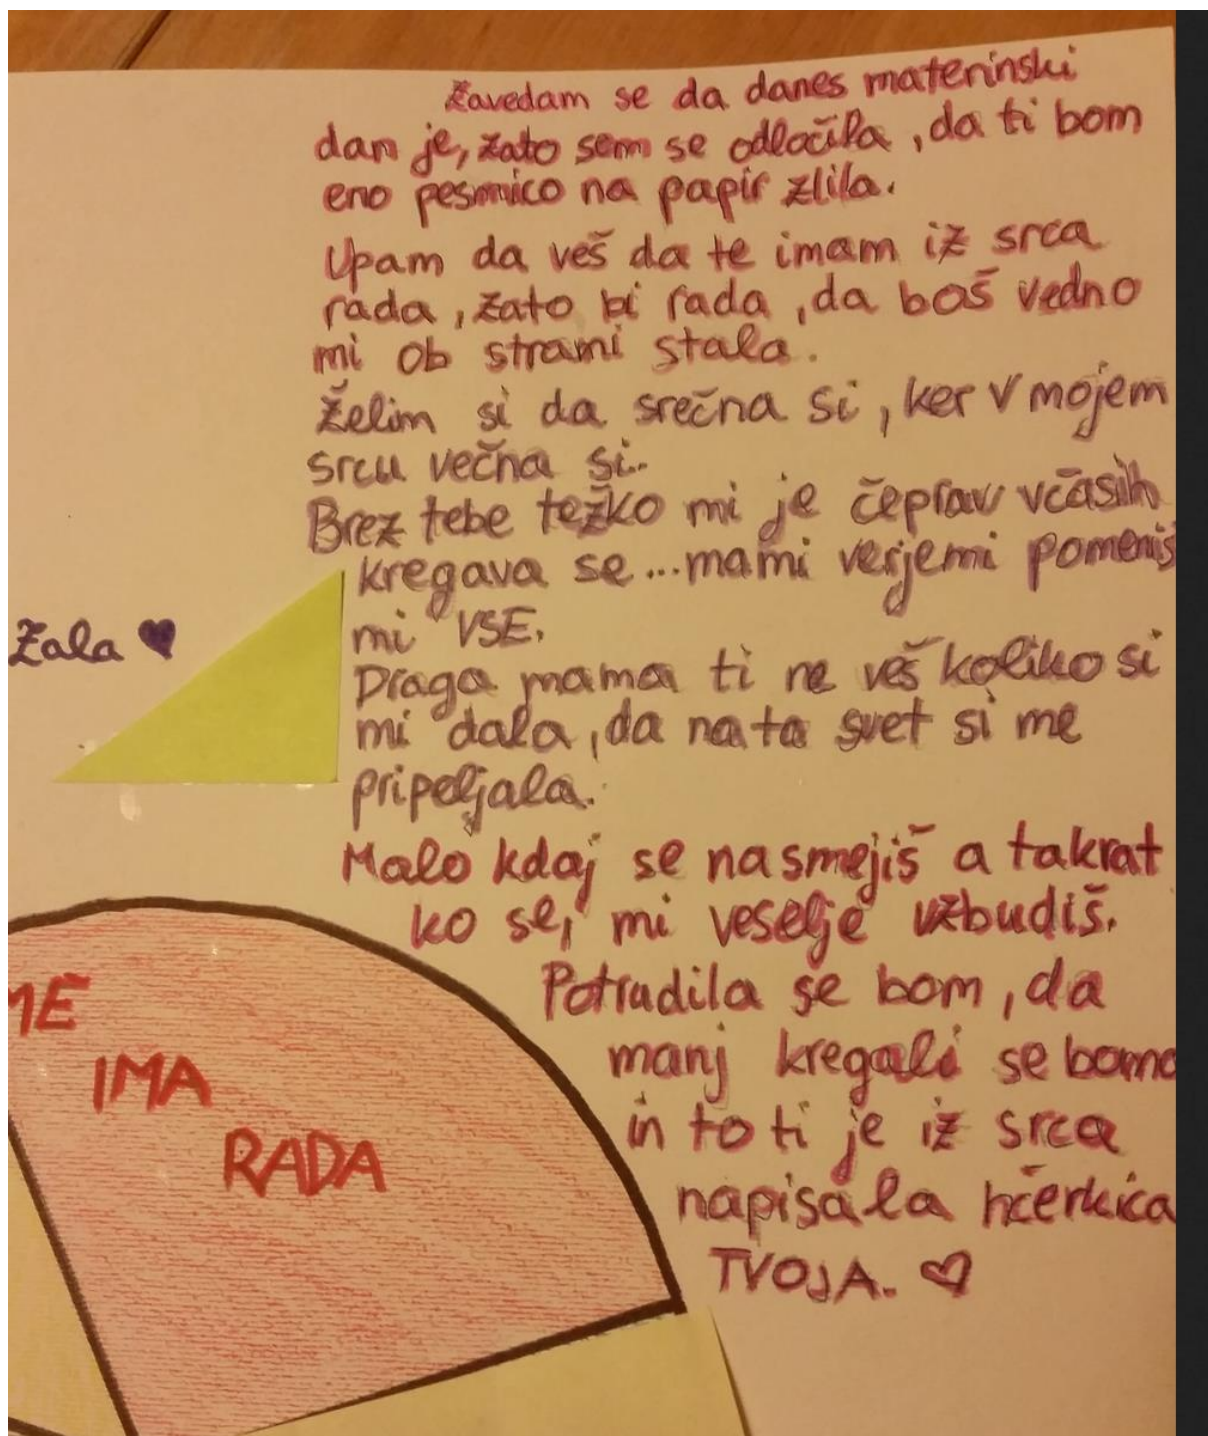 Zavedam se da danes materinski
dan je, zato sem se odločila, da ti bom
eno pesmico na papir zlila.
Upam da veš da te imam iz srca
rada, zato bi rada, da boš vedno
mi ob strami stala.
Želim si da srečna si, ker v mojem
srcu večna si.
Brez tebe težko mi je čeprav včasih
kregava se...mami verjemi pomeniš
mi VSE.
Draga mama ti ne veš koliko si
mi dala, da na ta svet si me
pripeljala.
Malo kdaj se nasmejiš a takrat
ko se, mi veselje vzbudiš.
Potrudila se bom, da
manj kregali se bomo
in to ti je iz srca
napisala hčerkica
TVOJA.
Zala
ME
IMA
RADA